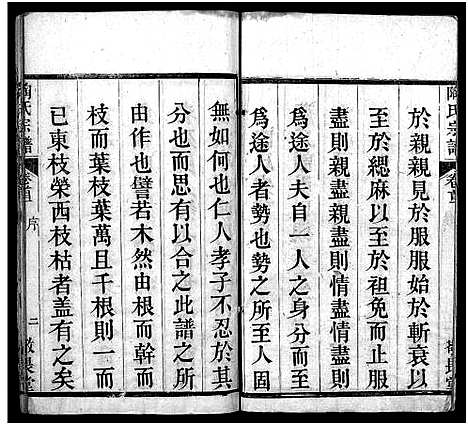 陶氏宗譜
卷首
於親親見於服服始於斬衰以
至於緦麻以至於袒免而止服
盡則親盡親盡則情盡情盡則
爲途人夫自一人之身分而至
爲途人者勢也勢之所至人固
無如何也仁人孝子不忍於其
分也而思有以合之此譜之所
由作也譬若木然由根而幹而
枝而葉枝葉萬且千根則一而
已東枝榮西枝枯者蓋有之矣
陶氏宗譜
卷首
序
二